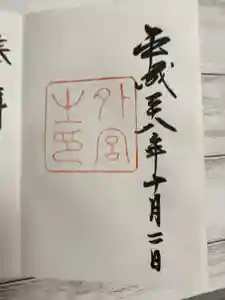 平成二十八年十月二日
外宮
之印
拝